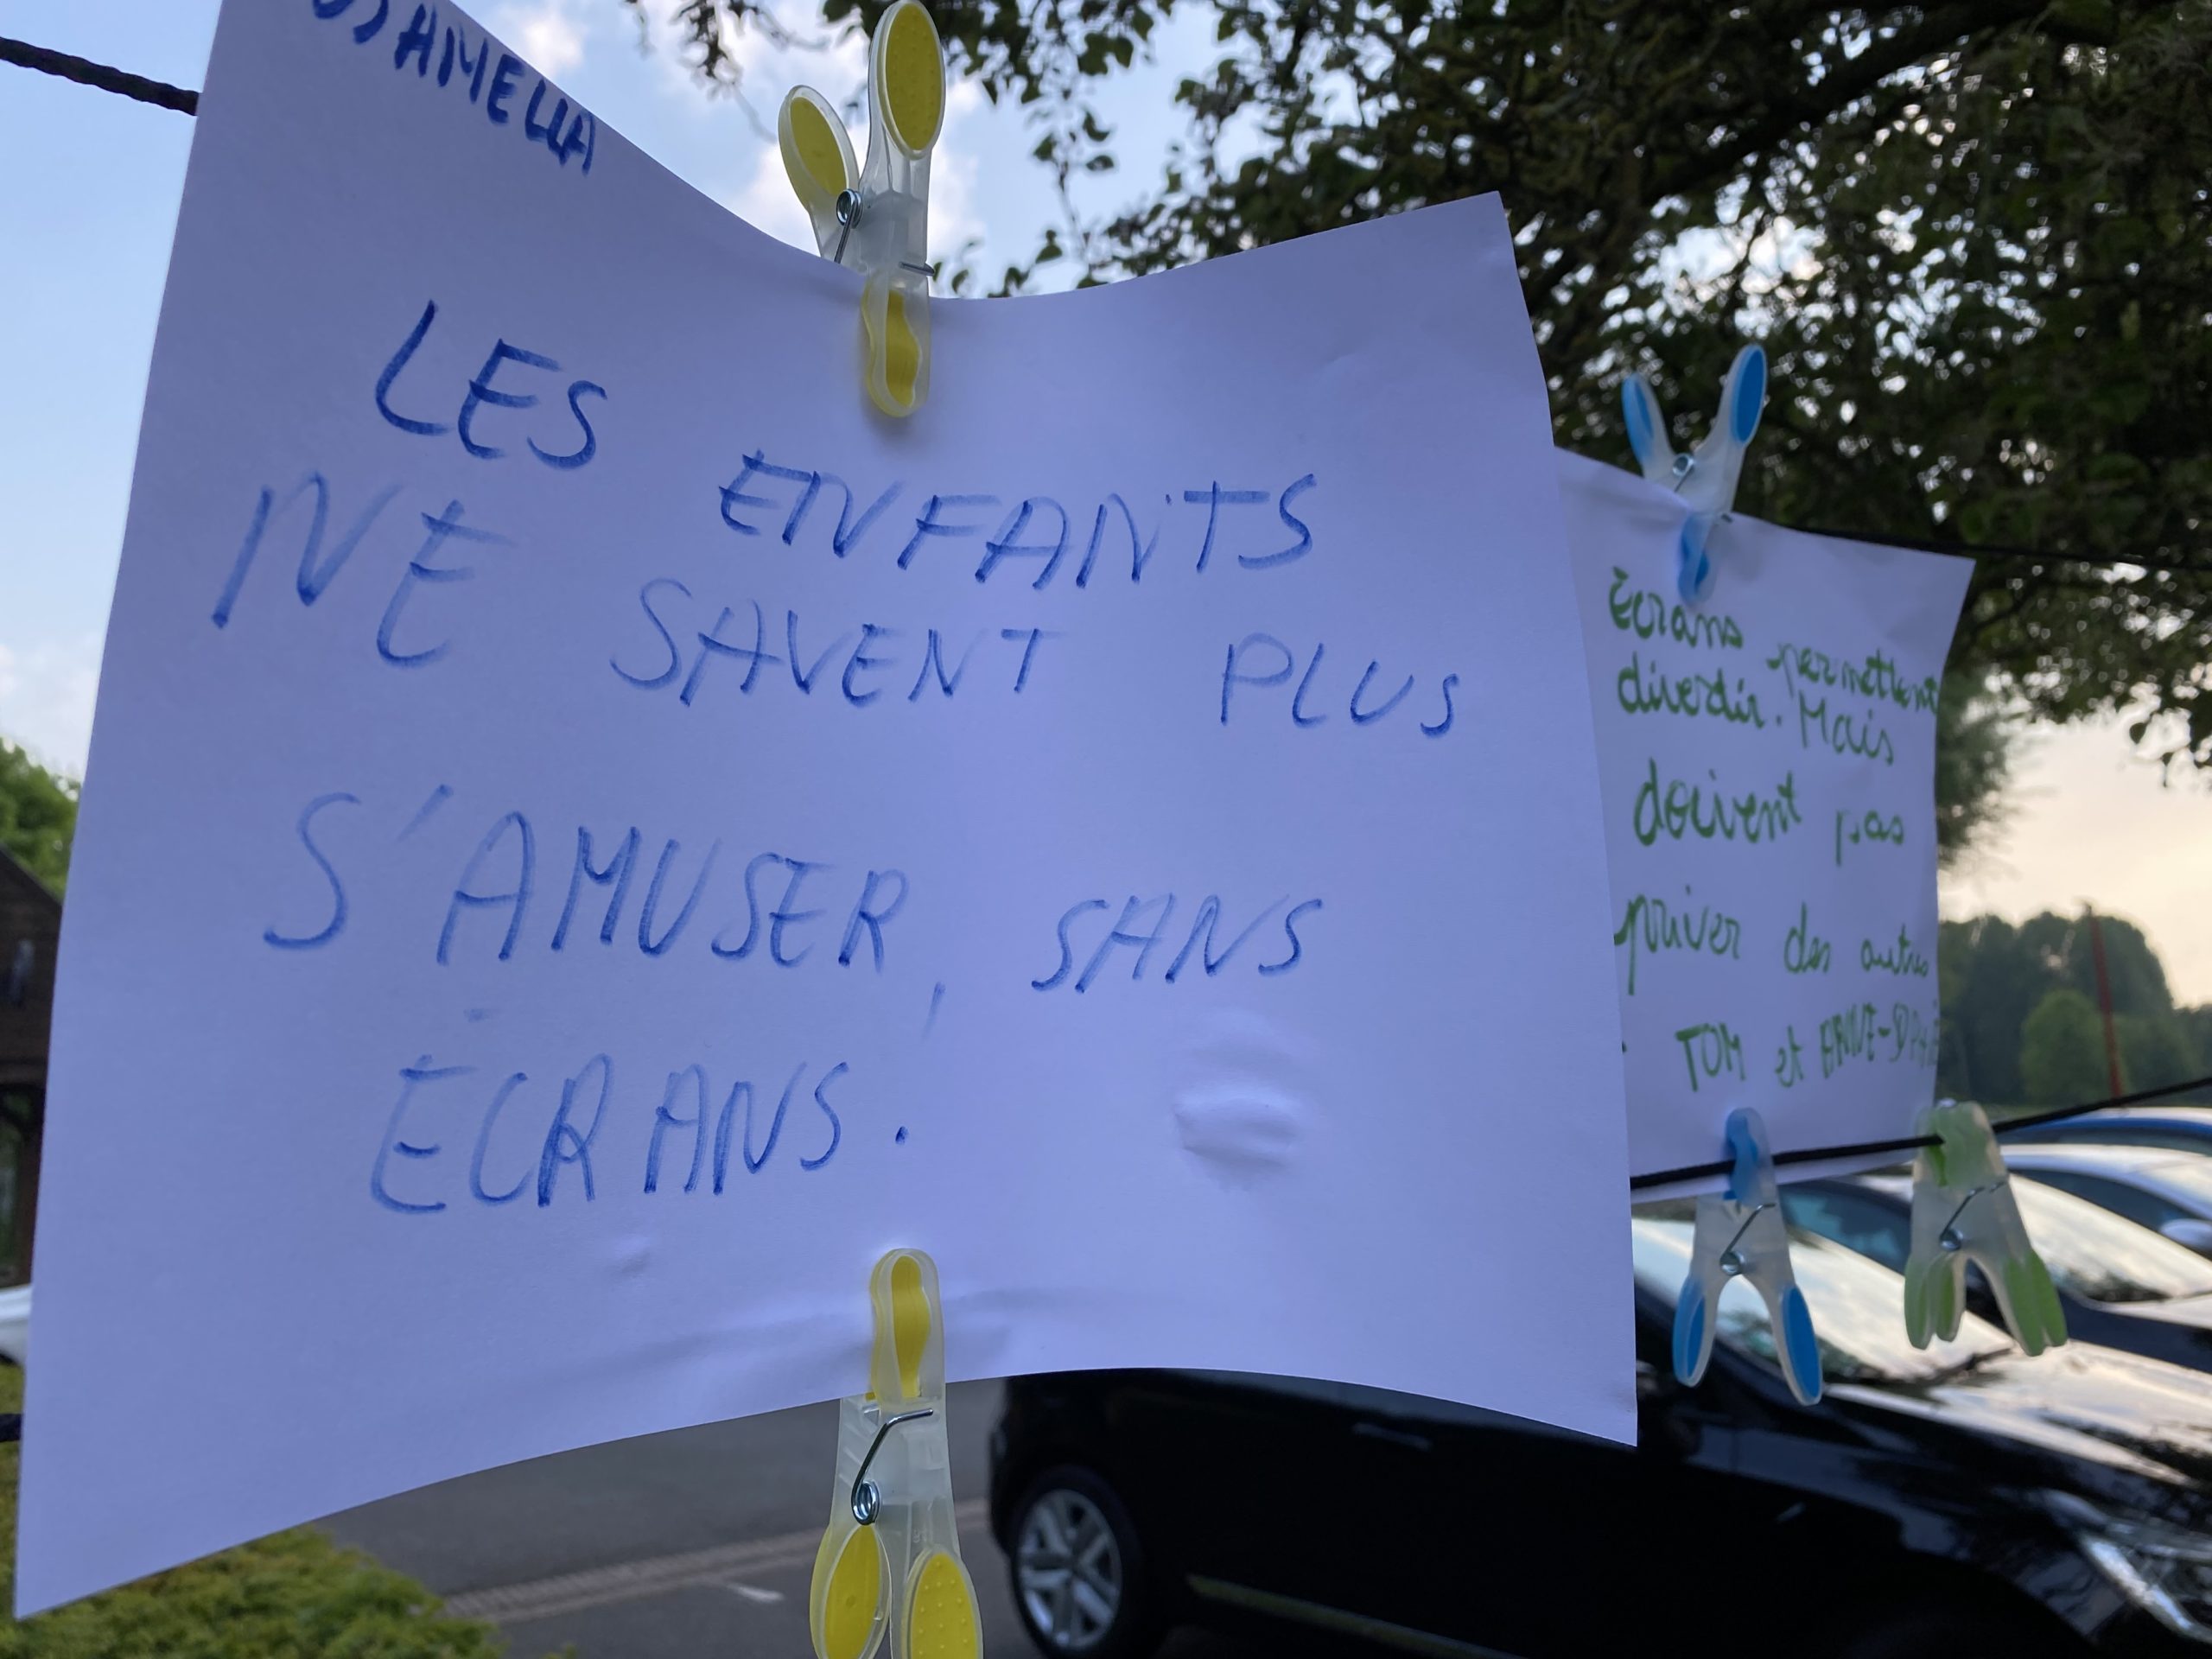 AMELLA
LES ENFANTS
NE SAVENT PLUS
S'AMUSER, SANS
ECRANS.
Ecrans permettent
divertir. Mais
doivent pas
priver des autres
TOM et